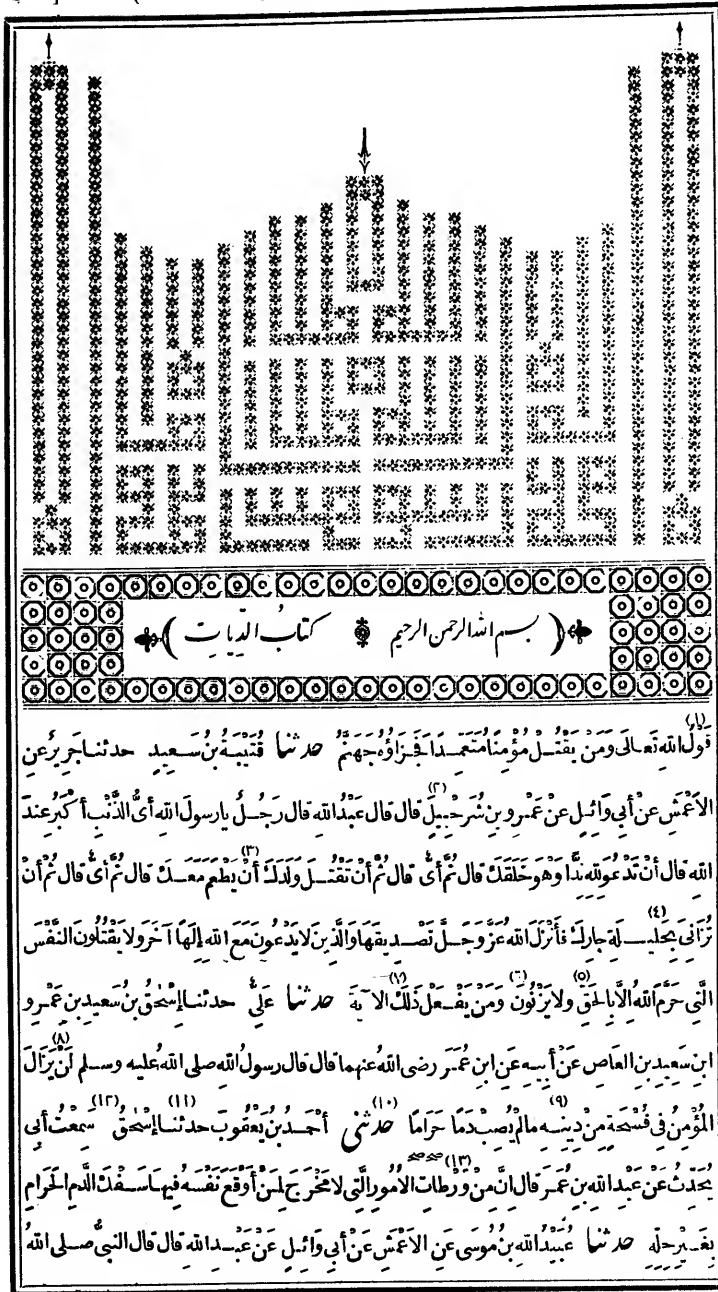 بسم الله الرحمن الرحيم كتابُ الدِّيات
(باب)
قولُ اللهِ تَعالَى وَمَنْ يَقْتُلْ مُؤْمِنًا مُتَعَمِّدًا فَجَزاؤُهُ جَهَنَّمُ حدثنا قُتَيْبَةُ بنُ سَعِيدٍ حدثنا جَرِيرٌ عنِ
الأعْمَشِ عنْ أبي وائِلٍ عنْ عَمْرِو بنِ شُرَحْبِيلَ (٢) قال قال عَبْدُ اللهِ قال رَجُلٌ يا رسولَ اللهِ أىُّ الذَّنْبِ أكْبَرُ عِنْدَ
اللهِ قال أنْ تَدْعُوَ لِلهِ نِدًّا وَهْوَ خَلَقَكَ قال ثُمَّ أىٌّ قال ثُمَّ أنْ تَقْتُلَ وَلَدَكَ (٣) أنْ يَطْعَمَ مَعَكَ قال ثُمَّ أىٌّ قال ثُمَّ أنْ
تُزَانِيَ بِحَلِيلَةِ (٤) جارِكَ فأنْزَلَ اللهُ عَزَّ وَجَلَّ تَصْدِيقَها وَالَّذِينَ لا يَدْعُونَ مَعَ اللهِ إلَهًا آخَرَ ولا يَقْتُلُونَ النَّفْسَ
الَّتِي حَرَّمَ اللهُ إلَّا بِالحَقِّ (٥) ولا يَزْنُونَ (٦) وَمَنْ يَفْعَلْ ذَلِكَ (٧) الآيَةَ حدثنا عَلِىٌّ حدثنا إسْحٰقُ بنُ سَعِيدِ بنِ عَمْرِو
ابنِ سَعِيدِ بنِ العاصِ عنْ أبِيهِ عنِ ابنِ عُمَرَ رضى الله عنهما قال قال رسولُ اللهِ صلى الله عليه وسلم لَنْ (٨) يَزَالَ
المُؤْمِنُ فى فُسْحَةٍ مِنْ دِينِهِ (٩) ما لَمْ يُصِبْ دَمًا حَرامًا (١٠) حدثنى أحْمَدُ بنُ يَعْقُوبَ (١١) حدثنا إسْحٰقُ (١٢) سَمِعْتُ أبى
يُحَدِّثُ عنْ عَبْدِ اللهِ بنِ عُمَرَ قال إنَّ مِنْ (١٣) وَرْطاتِ الأُمُورِ الَّتِى لا مَخْرَجَ لِمَنْ أوْقَعَ نَفْسَهُ فِيها سَفْكَ الدَّمِ الحَرامِ
بِغَيْرِ حِلِّهِ حدثنا عُبَيْدُ اللهِ بنُ مُوسَى عَنِ الأعْمَشِ عنْ أبى وائِلٍ عنْ عَبْدِ اللهِ قال قال النبىُّ صلى الله